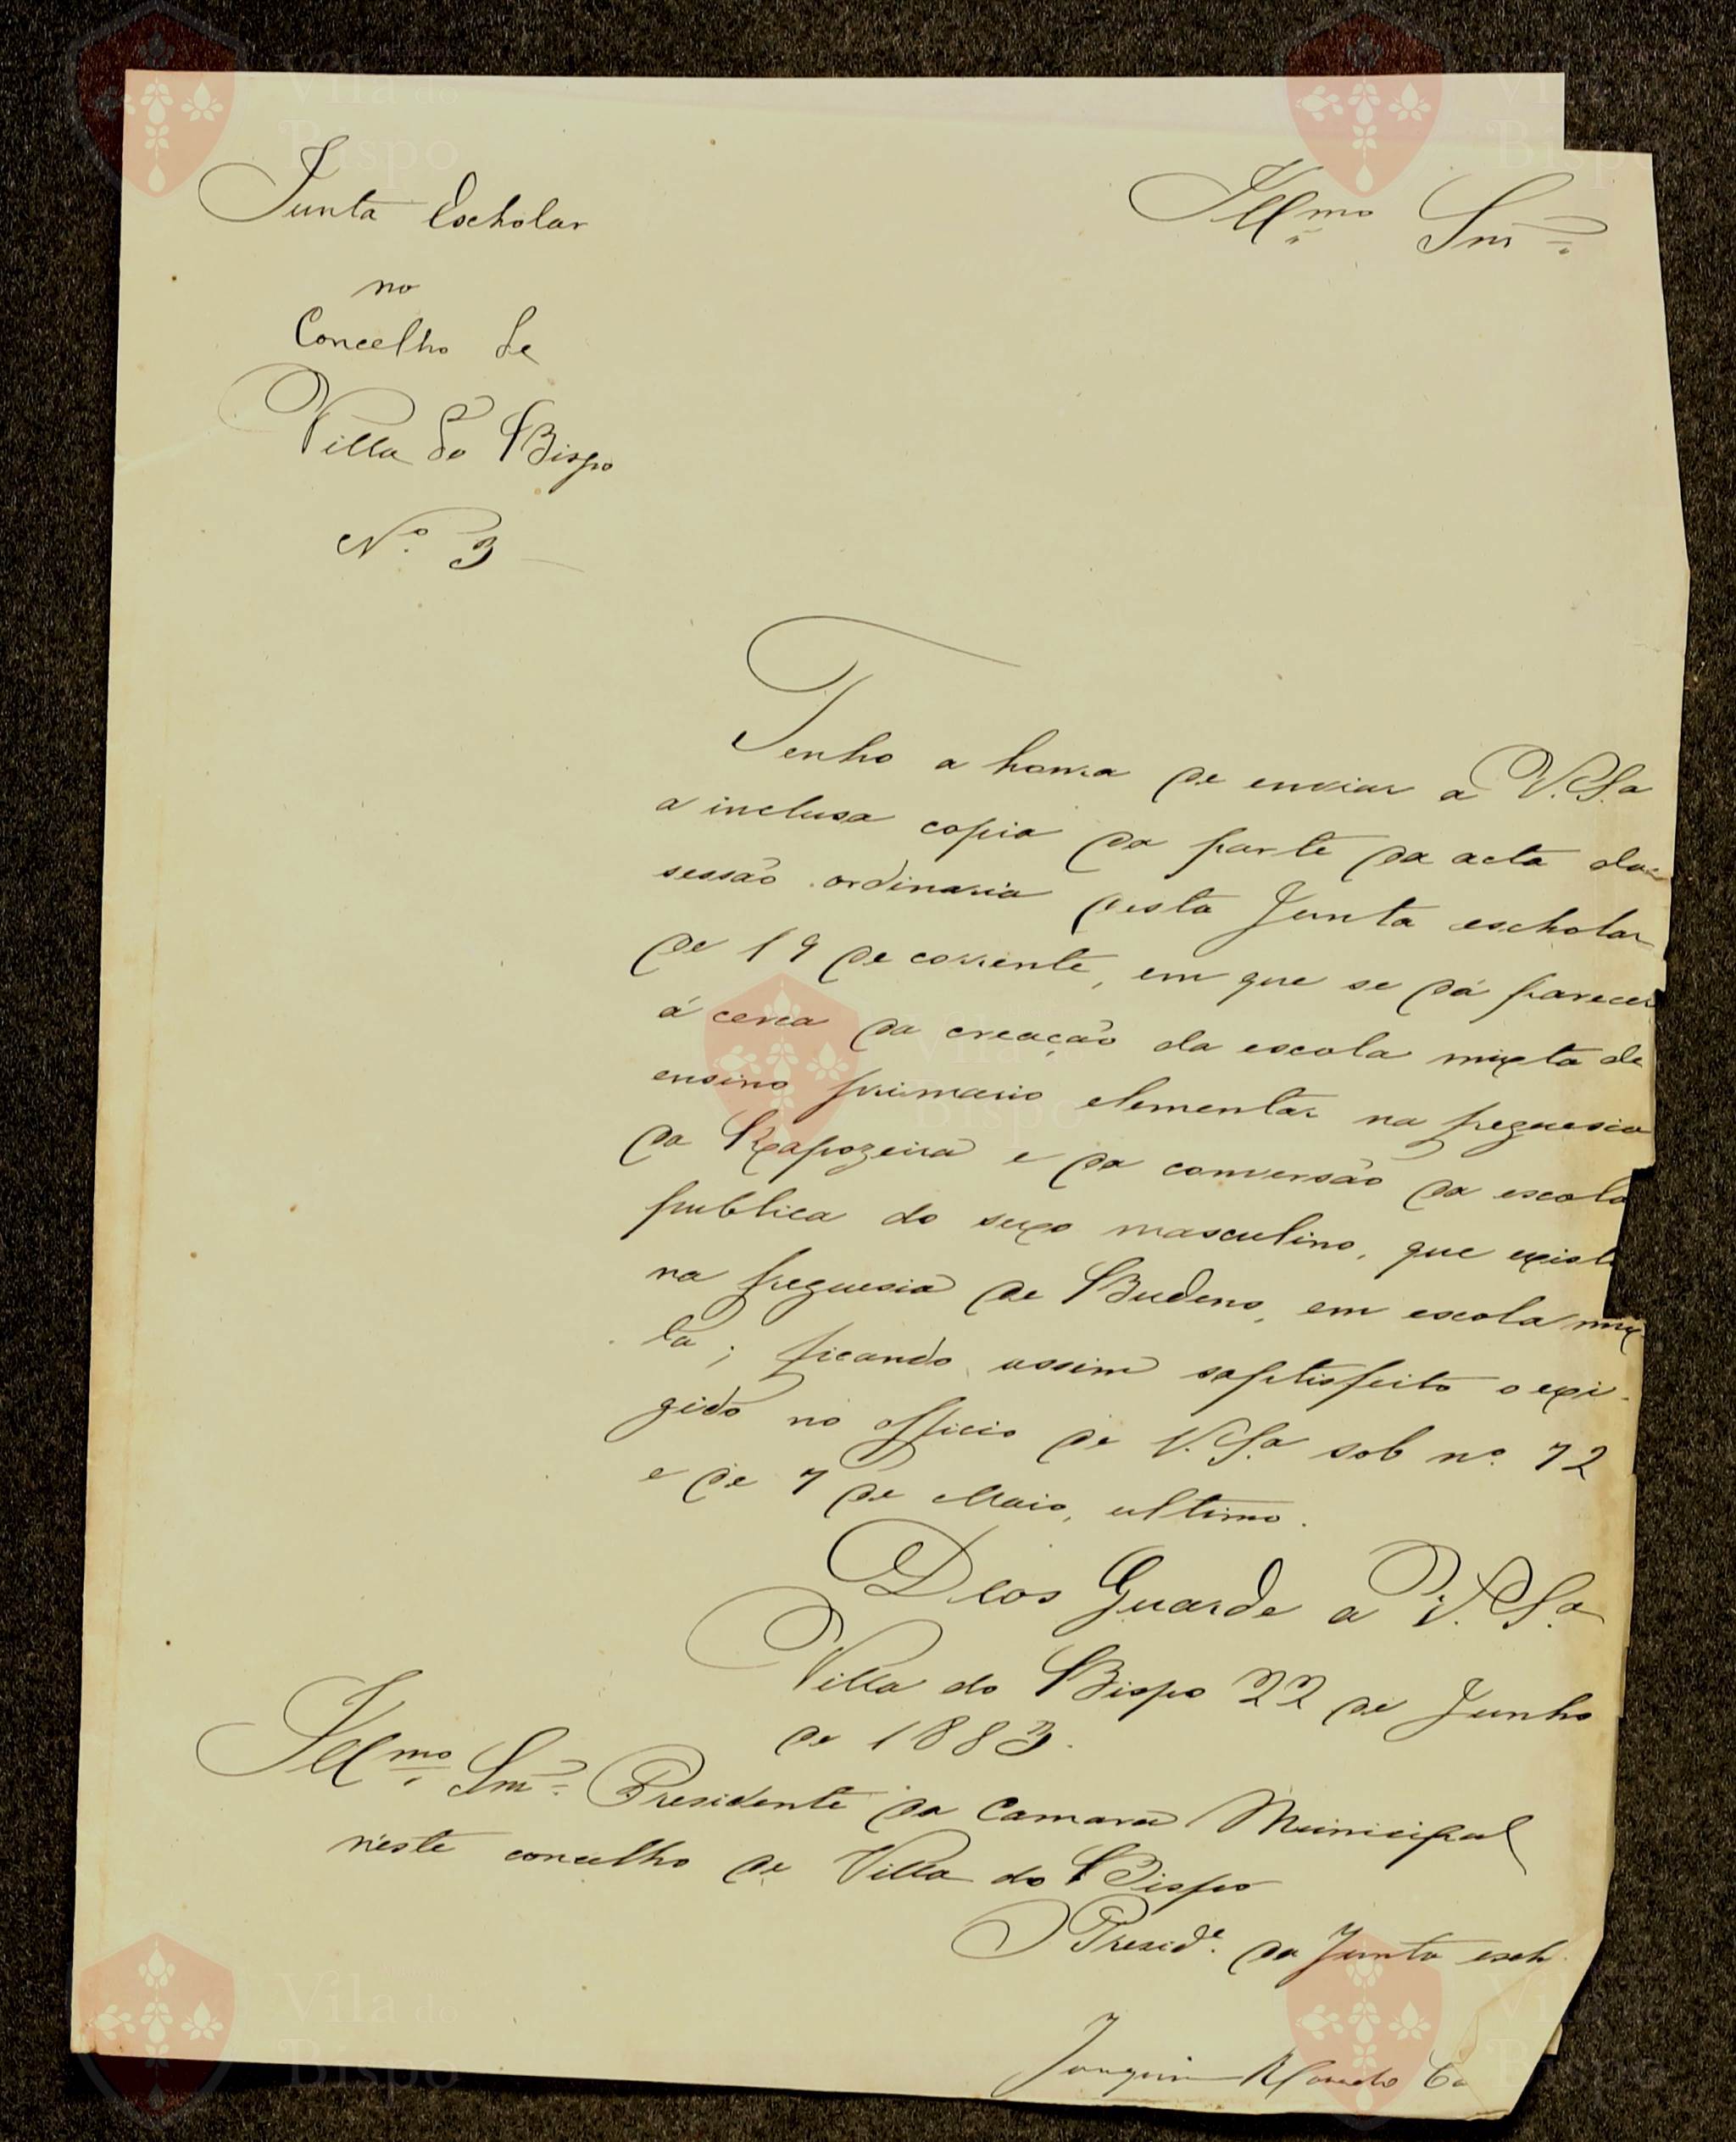 Junta Escholar
no
Concelho de
Villa do Bispo
Nº 3
Illmo Snr
Tenho a honra de enviar a V. Sª
a inclusa copia da parte da acta da
sessão ordinaria desta Junta escholar
de 19 de corrente, em que se dá parecer
á cerca da creação da escola mixta de
ensino primario elementar na freguesia
da Rapozeira e da conversão da escola
publica do sexo masculino, que exist
na freguesia de Budens, em escola mix
ta; ficando assim saptisfeito o exi-
gido no officio de V. Sª sob nº 72
e de 7 de Maio, ultimo.
Deos Guarde a V. Sª
Villa do Bispo 22 de Junho
de 1883.
Illmo Snr Presidente da Camara Municipal
neste concelho de Villa do Bispo
O Preside da Junta esch
Joaquim
Vila do Bispo
Vila do Bispo
Vila do Bispo
Vila do Bispo